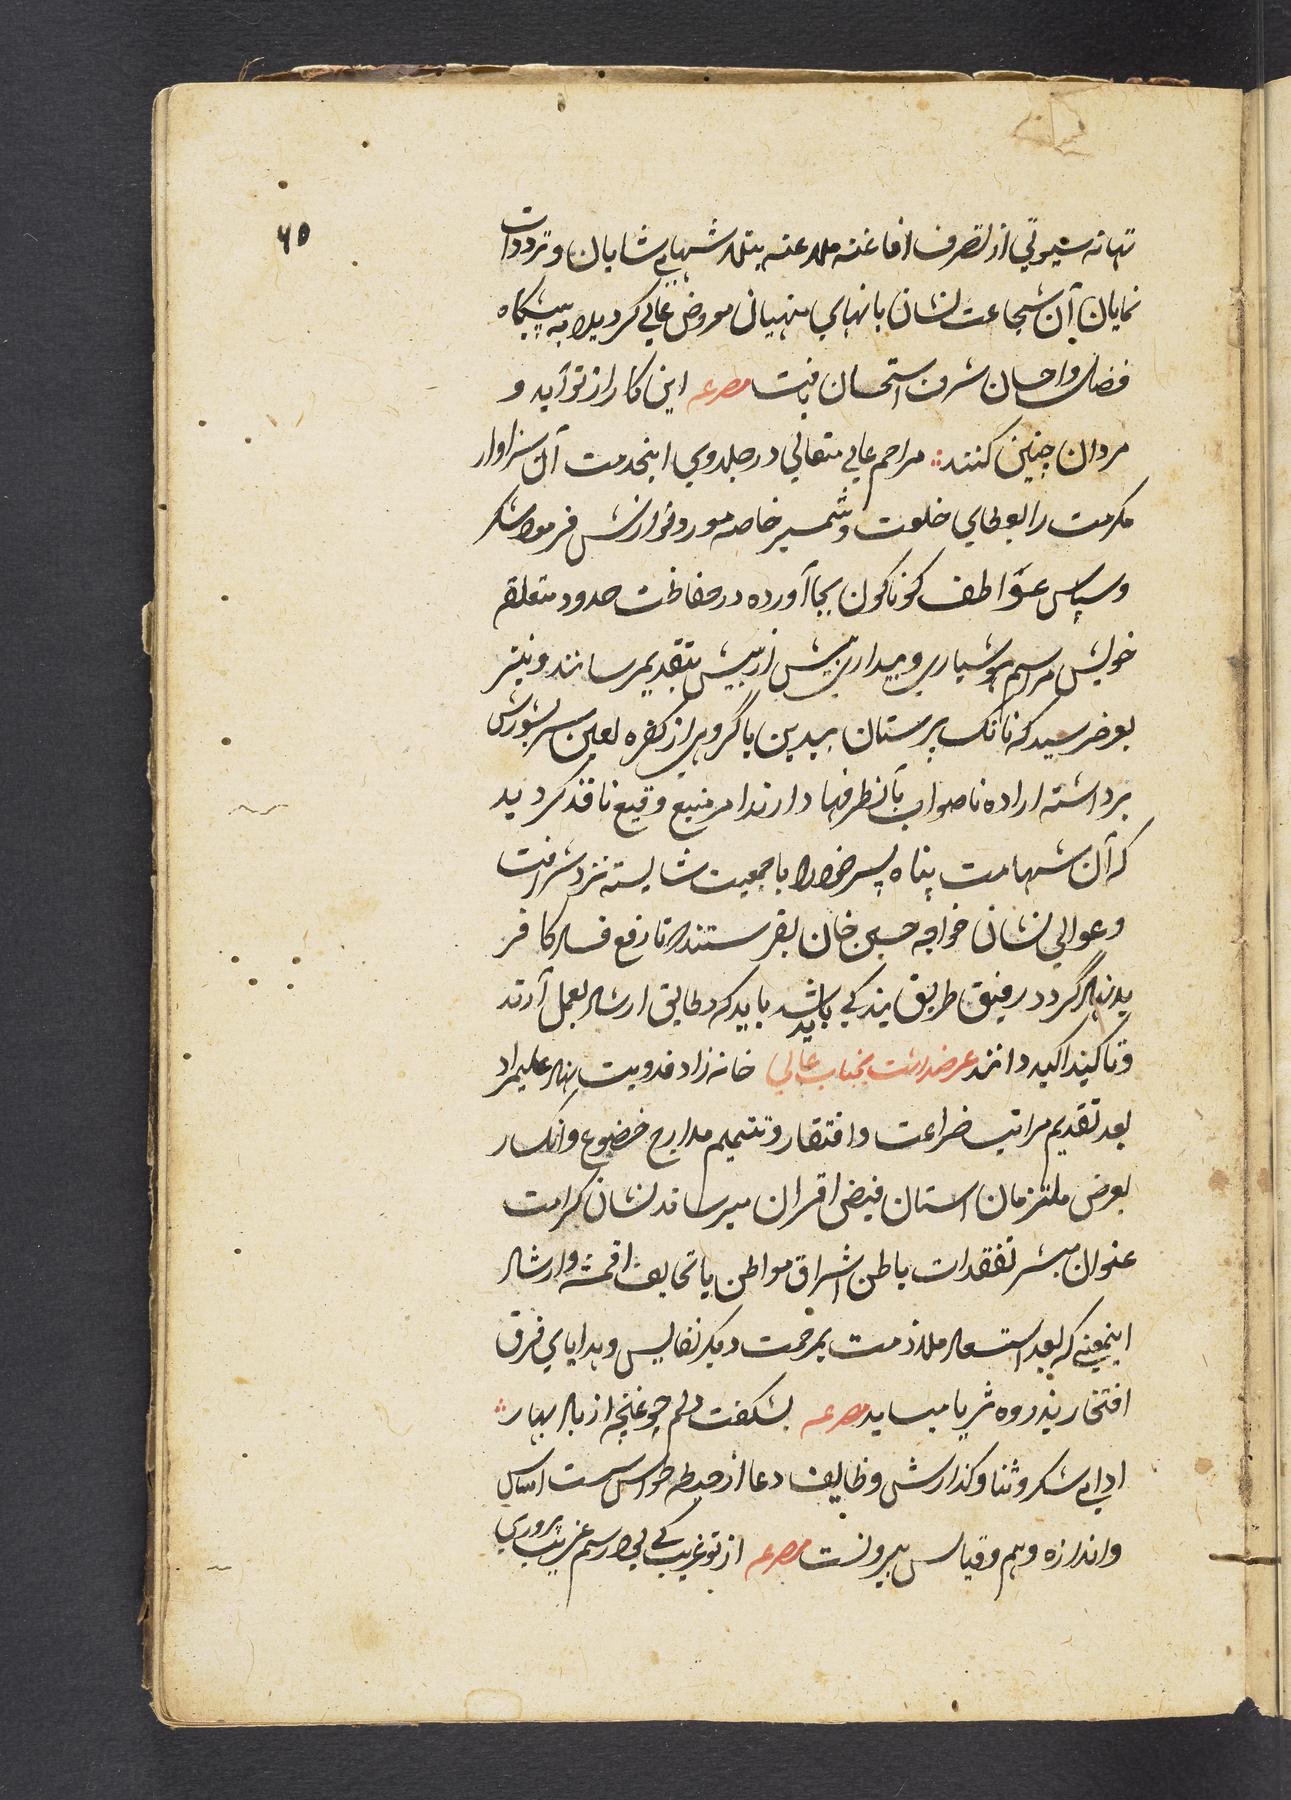 ۶۵
تهانه سیوتی از تصرف افاغنه ملاعنه بتلاشهای شایان و ترددات
نمایان آن شجاعت نشان بانهای منهیان معروض عالی گردیده به پیشگاه
فضل و احسان شرف استحسان یافت مصرعه این کار از تو آید و
مردان چنین کنند مراحم عالی متعالی در جلدوی اینخدمت آن سزاوار
مکرمت را بعطای خلعت و شمشیر خاصه مورد نوازش فرموده شکر
و سپاس عواطف گوناگون بجا آورده در حفاظت حدود متعلقه
خویش مراسم هوشیاری و بیداری بیش از پیش بتقدیم رسانند و نیز
بعرض رسید که نانک پرستان بیدین با گروهی از کفره لعین سر بشورش
برداشته اراده ناصواب بآنطرفها دارند امر منیع وقیع نافذ گردید
که آن شهامت پناه پسر خود را با جمعیت شایسته نزد شرافت
و عوالی نشان خواجه حسین خان بفرستند تا رفع فساد کافر
بدنهاد گردد رفیق طریق بندگی باشد باید که مطابق ارشاد بعمل آرند
و تاکید اکید دانند عرضداشت بجناب عالی خانه زاد فدویت نهاد علیمراد
بعد تقدیم مراتب ضراعت و افتقار و تتمیم مدارج خضوع و انکسار
بعرض ملتزمان آستان فیض اقتران میرساند نشان کرامت
عنوان مبشر تفقدات باطن اشراق مواطن با تحایف اقمشه و ارشاد
اینمعنی که بعد استسعاد ملازمت بمرحمت دیگر نفایس و هدایای فرق
افتخار بذروه ثریا میساید مصرعه بشگفت دلم چو غنچه از باد بهار
ادای شکر و ثنا و گذارش وظایف دعا از حیطه حواس سست اساس
و اندازه وهم و قیاس بیرونست مصرعه از تو غریب کی بود رسم غریب پروری